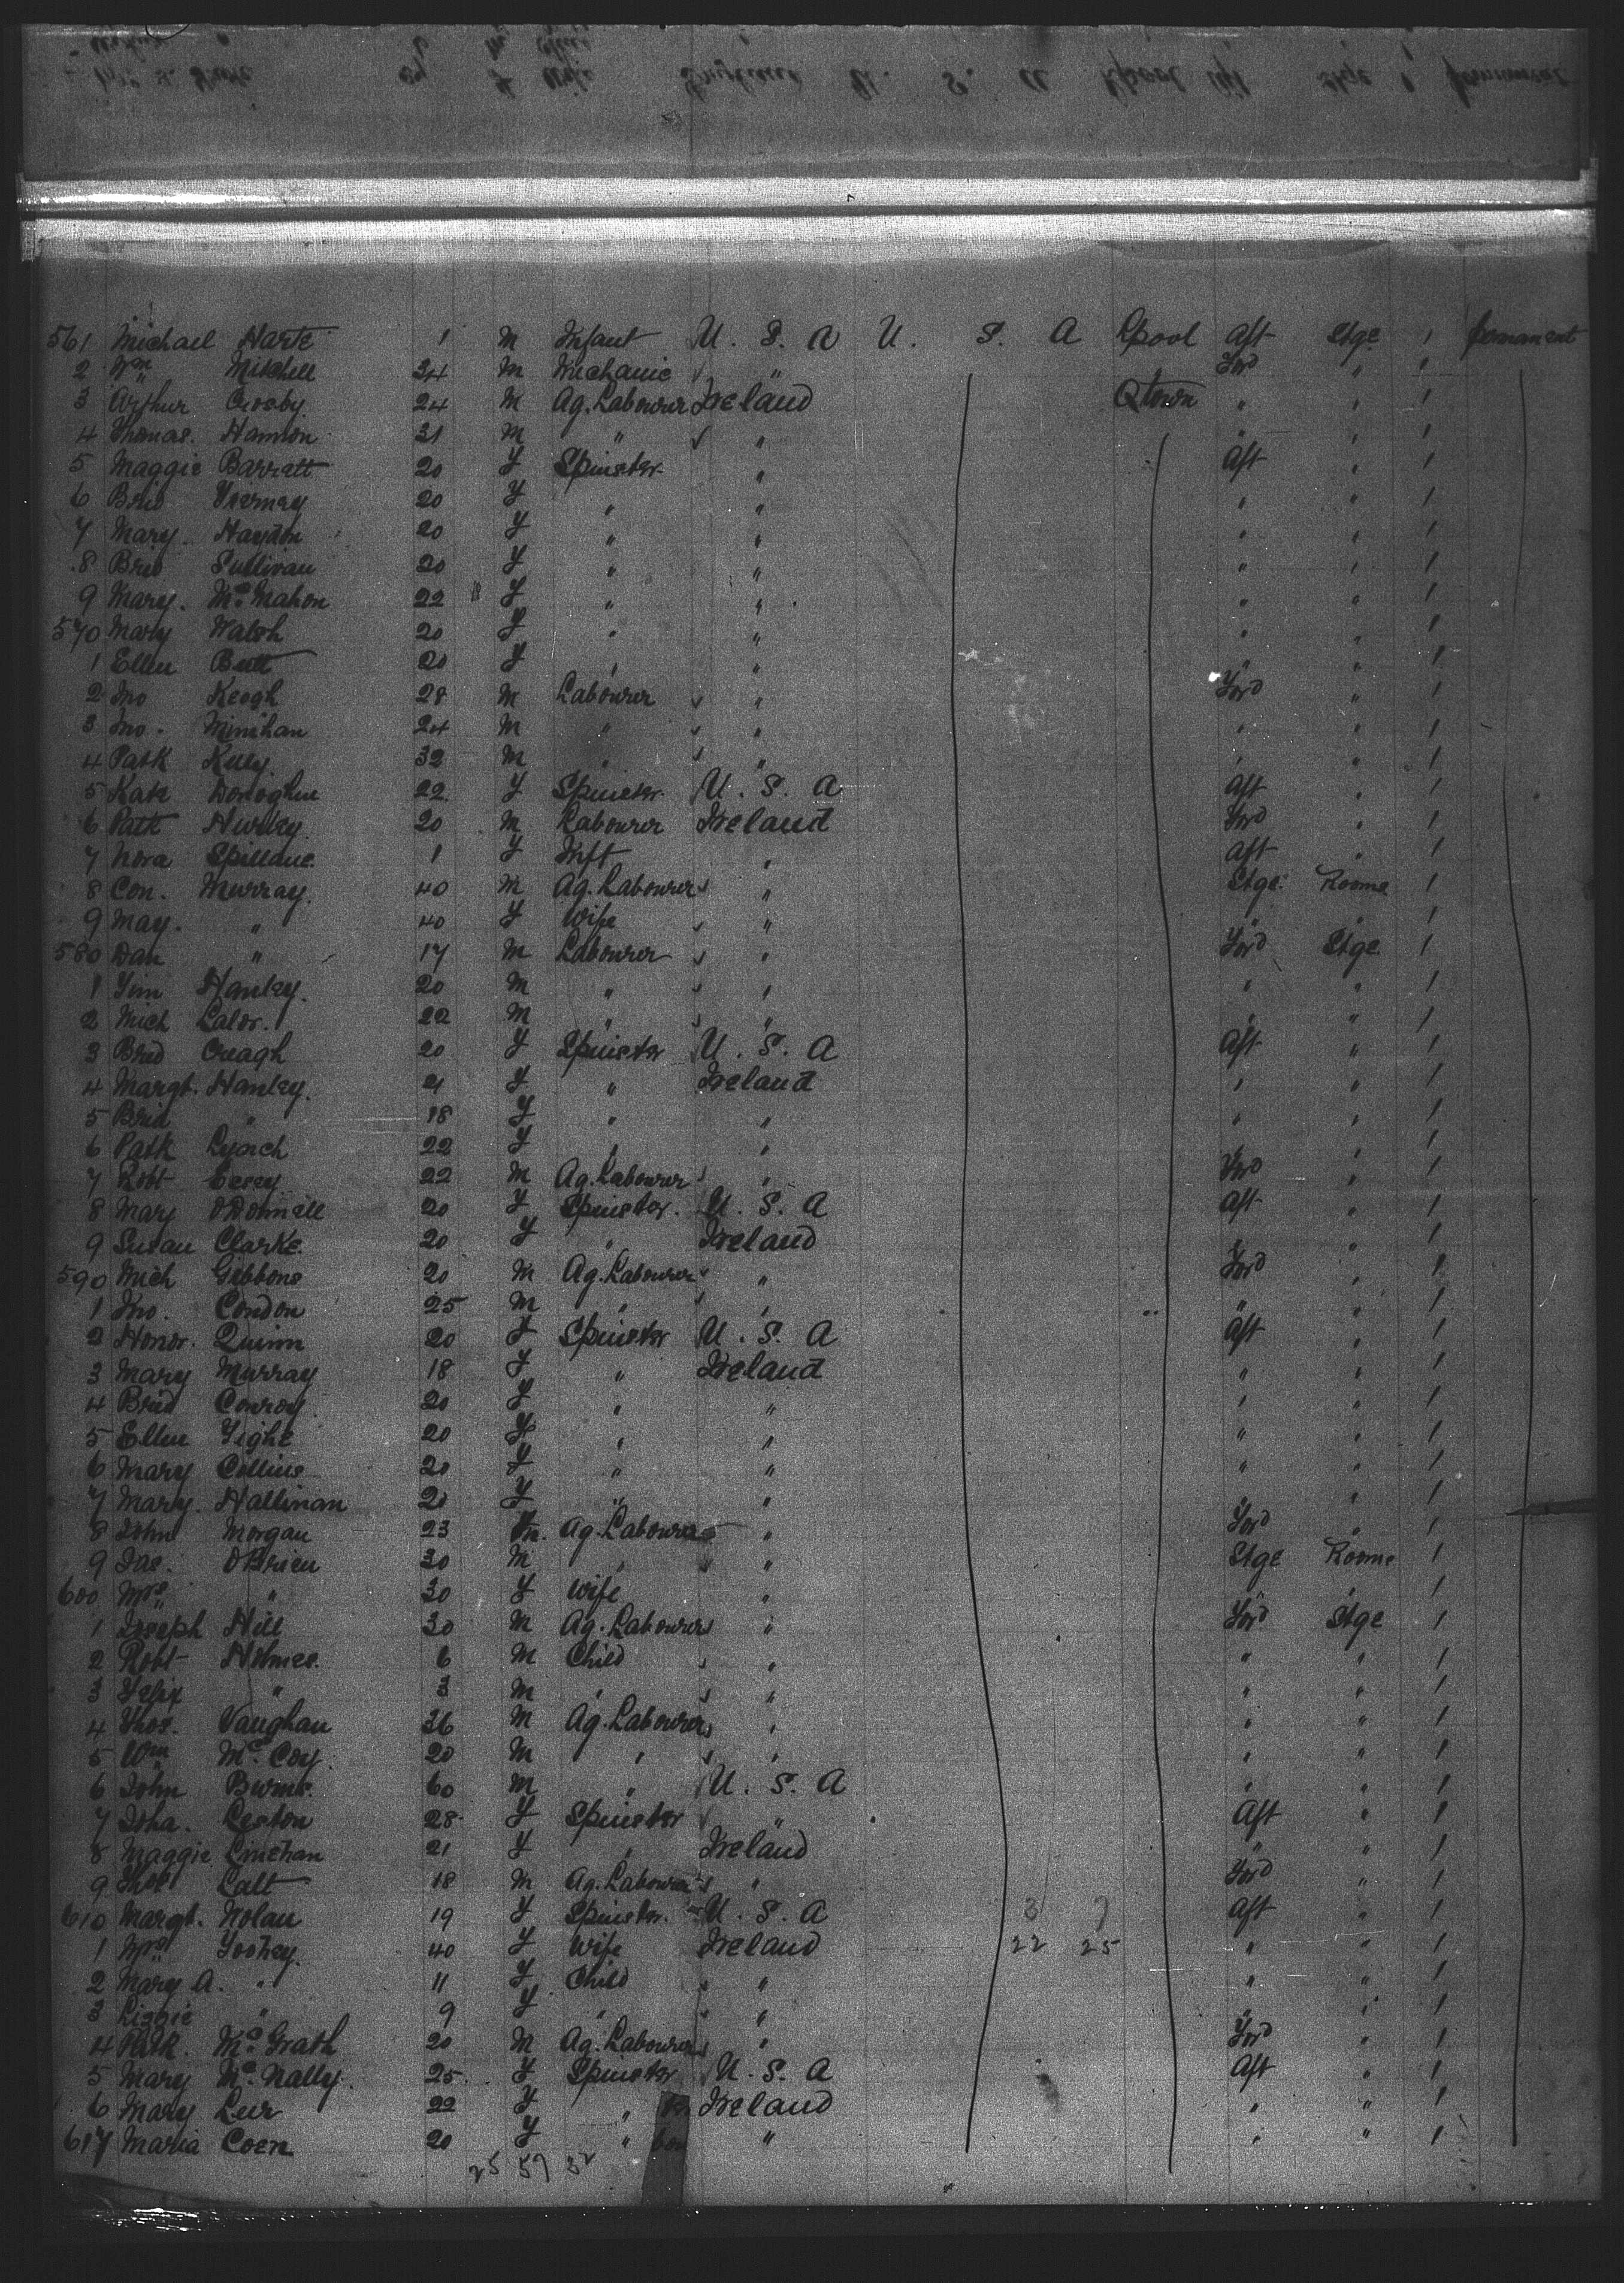 561 Michael Harte 1 M Infant U. S. A U. S. A Lpool Aft Stge 1 Permanent
2 Wm Mitchell 34 M Mechanic " Ford " 1
3 Arthur Crosby 24 M Ag. Labourer Ireland Qtown " " 1
4 Thomas Hannon 31 M " " " " 1
5 Maggie Barratt 20 F Spinster " Aft " 1
6 Brid 20 F " " " " 1
7 Mary Haydon 20 F " " " " 1
8 Brid Sullivan 20 F " " " " 1
9 Mary. Mc Mahon 22 F " " " " 1
570 Mary Walsh 20 F " " " " 1
1 Ellen Butt 20 F " " " " 1
2 Jno Keogh 28 M Labourer " Ford " 1
3 Jno. Minihan 24 M " " " " 1
4 Patk Kiely 32 M " " " " 1
5 Kate Donoghue 22 F Spinster U. S. A Aft " 1
6 Patk Hurley 20 M Labourer Ireland Ford " 1
7 Nora Spillane 1 F Inft " Aft " 1
8 Con. Murray 40 M Ag. Labourer " Stge Rooms 1
9 May. " 40 F Wife " " " 1
580 Dan " 17 M Labourer " Ford Stge 1
1 Tim Hanley. 20 M " " " " 1
2 Mich Lalor. 22 M " " " " 1
3 Brid Creagh 20 F Spinster U. S. A Aft " 1
4 Margt. Hanley. 21 F " Ireland " " 1
5 Brid " 18 F " " " " 1
6 Patk Lynch 22 F " " " " 1
7 Robt Casey 22 M Ag. Labourer " Ford " 1
8 Mary ODonnell 20 F Spinster. U. S. A Aft " 1
9 Susan Clarke. 20 F " Ireland " " 1
590 Mich Gibbons 20 M Ag. Labourer " Ford " 1
1 Jno. Condon 25 M " " " " 1
2 Honor. Quinn 20 F Spinster U. S. A Aft " 1
3 Mary Murray 18 F " Ireland " " 1
4 Brid Conroy 20 F " " " " 1
5 Ellen Tighe 20 F " " " " 1
6 Mary Collins 20 F " " " " 1
7 Mary. Hallinan 20 F " " " " 1
8 John Morgan 23 M. Ag. Labourer " Ford " 1
9 Jas. OBrien 30 M " " Stge Rooms 1
600 Mrs " 30 F Wife " " " 1
1 Joseph Hill 30 M Ag. Labourer " Ford Stge 1
2 Robt Holmes. 6 M Child " " " 1
3 Felix " 3 M " " " " 1
4 Thos. Vaughan 36 M Ag. Labourer " " " 1
5 Wm Mc Coy. 20 M " " " " 1
6 John Burns. 60 M " U. S. A " " 1
7 Joha. Leston 28 F Spinster " Aft " 1
8 Maggie Linehan 21 F " Ireland " " 1
9 Thos Lalt 18 M Ag. Labourer " Ford " 1
610 Margt. Nolan 19 F Spinster. U. S. A 3 7 Aft " 1
1 Mrs Toohey. 40 F Wife Ireland 22 25 " " 1
2 Mary A. " 11 F Child " " " 1
3 Lizzie " 9 F " " " " 1
4 Patk. Mc Grath 20 M Ag. Labourer " Ford " 1
5 Mary Mc Nally. 25 F Spinster U. S. A Aft " 1
6 Mary 22 F " Ireland " " 1
617 Maria Coen 20 F " " " " 1
25 57 32